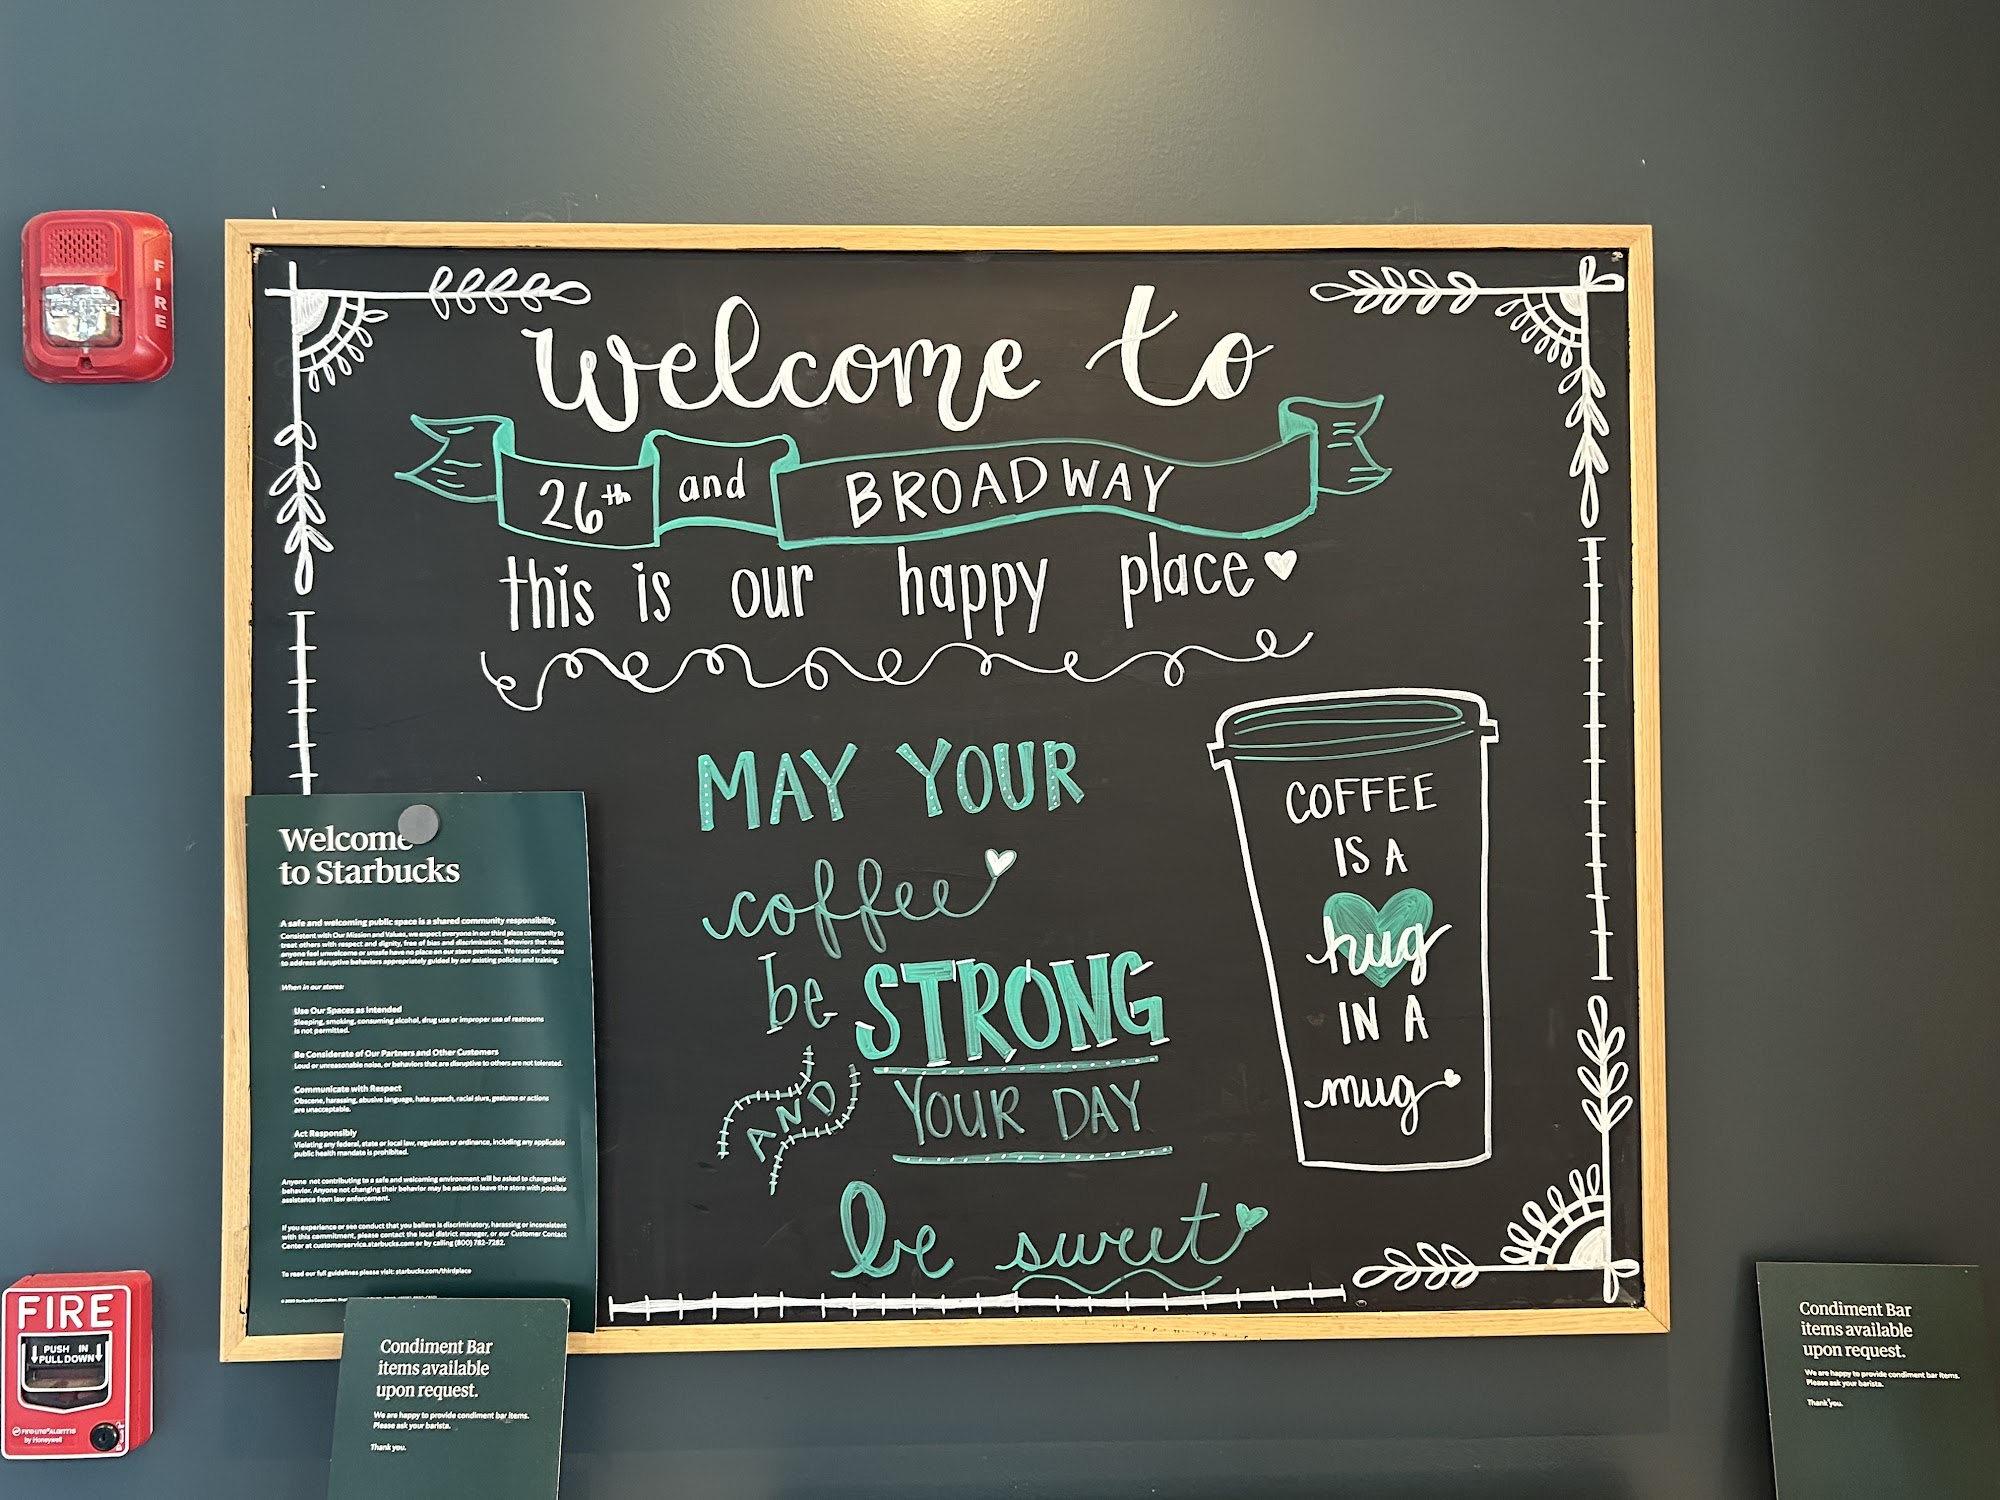 FIRE
welcome to
26th and BROADWAY
this is our happy place
MAY YOUR
coffee
be STRONG
AND YOUR DAY
be sweet
COFFEE
IS A
hug
IN A
mug
Welcome
to Starbucks
A safe and welcoming public space is a shared community responsibility.
Consistent with Our Mission and Values, we expect everyone in our third place community to
treat others with respect and dignity, free of bias and discrimination. Behaviors that make
anyone feel unwelcome or unsafe have no place on our store premises. We trust our baristas
to address disruptive behaviors appropriately guided by our existing policies and training.
When in our stores:
Use Our Spaces as Intended
Sleeping, smoking, consuming alcohol, drug use or improper use of restrooms
is not permitted.
Be Considerate of Our Partners and Other Customers
Loud or unreasonable noise, or behaviors that are disruptive to others are not tolerated.
Communicate with Respect
Obscene, harassing, abusive language, hate speech, racial slurs, gestures or actions
are unacceptable.
Act Responsibly
Violating any federal, state or local law, regulation or ordinance, including any applicable
public health mandate is prohibited.
Anyone not contributing to a safe and welcoming environment will be asked to change their
behavior. Anyone not changing their behavior may be asked to leave the store with possible
assistance from law enforcement.
If you experience or see conduct that you believe is discriminatory, harassing or inconsistent
with this commitment, please contact the local district manager, or our Customer Contact
Center at customerservice.starbucks.com or by calling (800) 782-7282.
To read our full guidelines please visit: starbucks.com/thirdplace
Starbucks Corporation.
FIRE
PUSH IN
PULL DOWN
FIRE-LITE ALARMS
by Honeywell
Condiment Bar
items available
upon request.
We are happy to provide condiment bar items.
Please ask your barista.
Thank you.
Condiment Bar
items available
upon request.
We are happy to provide condiment bar items.
Please ask your barista.
Thank you.